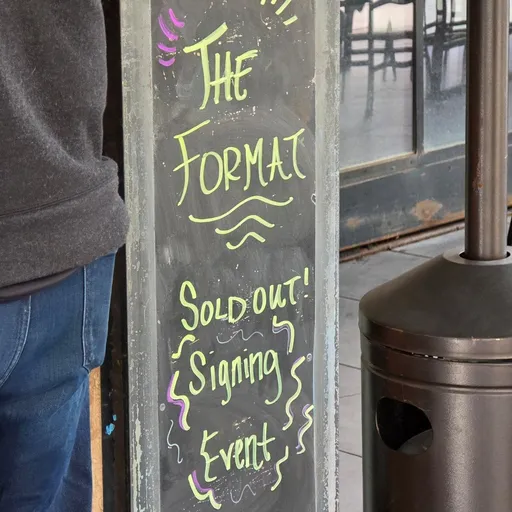 The
Format
Sold out!
Signing
Event